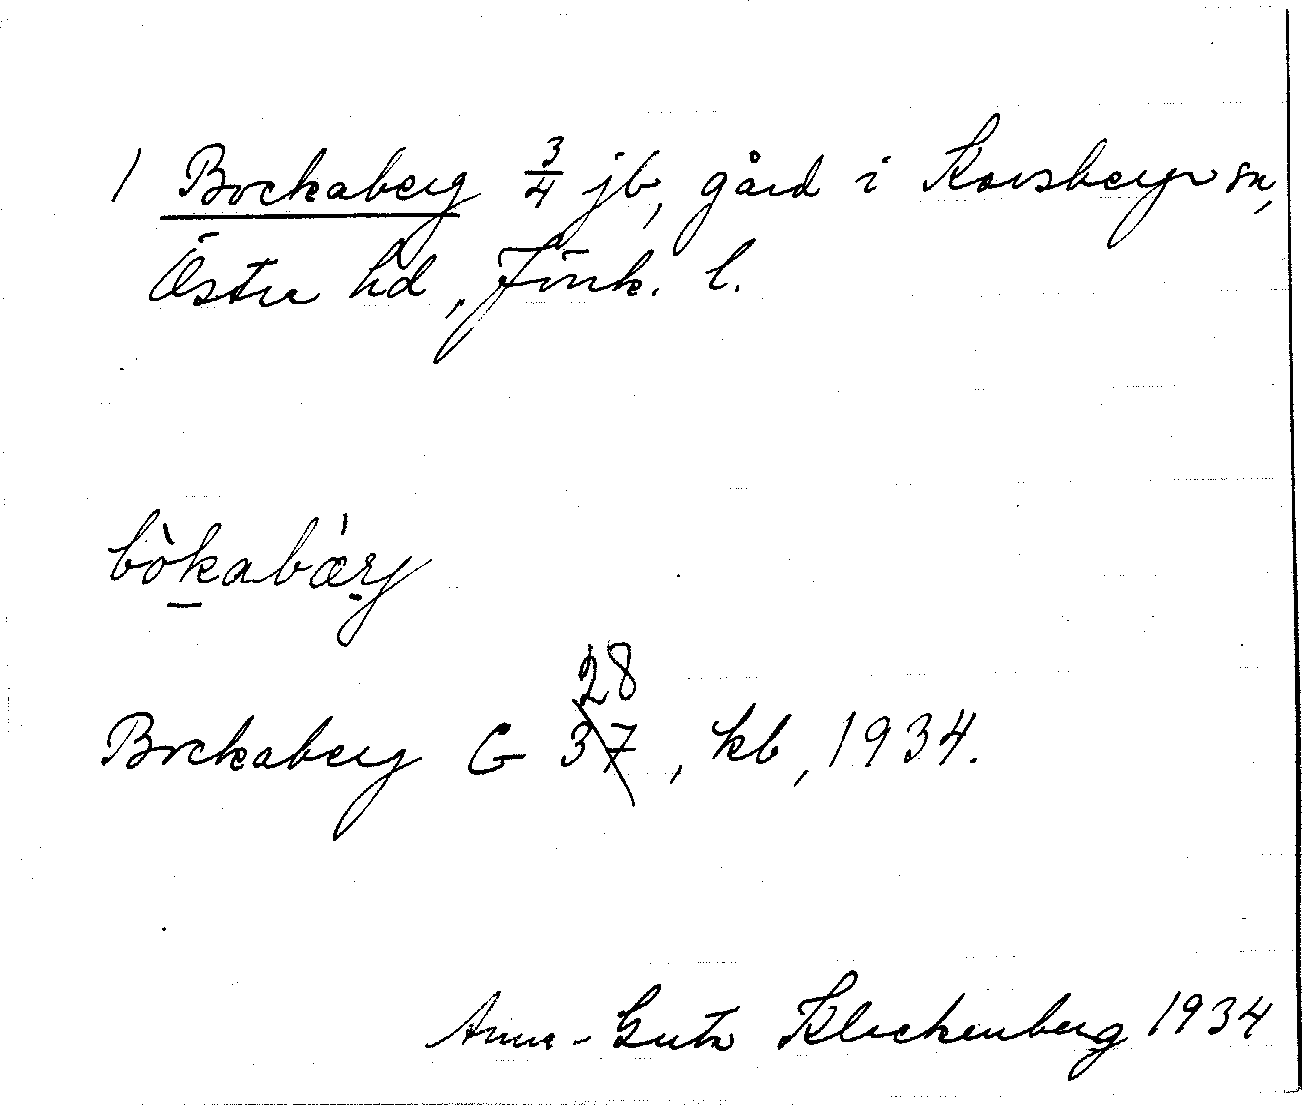 1 Bockaberg 3/4 jb, gård i Korsberga sn,
Östra hd, Jönk. l.
bòkabæ̀rj
28
Bockaberg G 37, kb, 1934.
Anna-Greta Klockenberg 1934